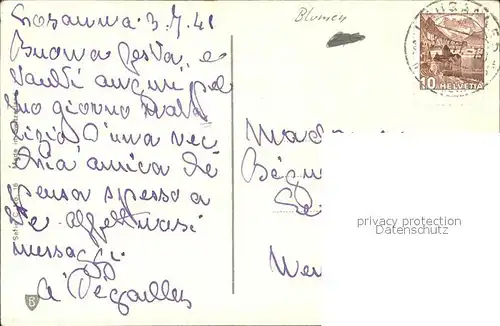 Losanna 3.7.41
Buona festa, e
tanti auguri pel
tuo giorno nata
lizio D'una vec
chia amica che
pensa spesso a
te affettuosi
messaggi.
A. Dégailler
Blumen
LAUSANNE
10 HELVETIA
Mad
Bég
privacy protection
Datenschutz